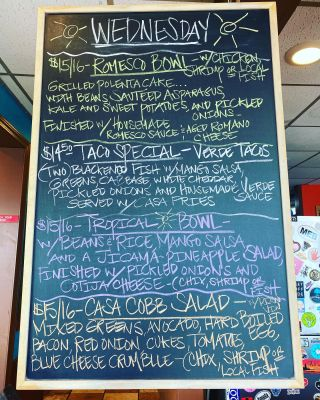 WEDNESDAY
$15/16 - ROMESCO BOWL - W/ CHICKEN, SHRIMP OR LOCAL FISH
GRILLED POLENTA CAKE...
WITH BEANS, SAUTEED ASPARAGUS,
KALE AND SWEET POTATOES, AND PICKLED ONIONS -
FINISHED W/ HOUSEMADE ROMESCO SAUCE & AGED ROMANO CHEESE
$14.50 - TACO SPECIAL - VERDE TACOS
TWO BLACKENED FISH W/ MANGO SALSA,
GREENS, CABBAGE, WHITE CHEDDAR,
PICKLED ONIONS AND HOUSEMADE VERDE SAUCE
SERVED W/ CASA FRIES
$15/16 - TROPICAL BOWL
W/ BEANS & RICE MANGO SALSA
AND A JICAMA-PINEAPPLE SALAD,
FINISHED W/ PICKLED ONIONS AND
COTIJA CHEESE - (CHIX, SHRIMP OR FISH)
$15/16 - CASA COBB SALAD -
MIXED GREENS, AVOCADO, HARD BOILED EGG,
BACON, RED ONION, CUKES, TOMATOE,
BLUE CHEESE CRUMBLE - (CHIX, SHRIMP OR LOCAL FISH